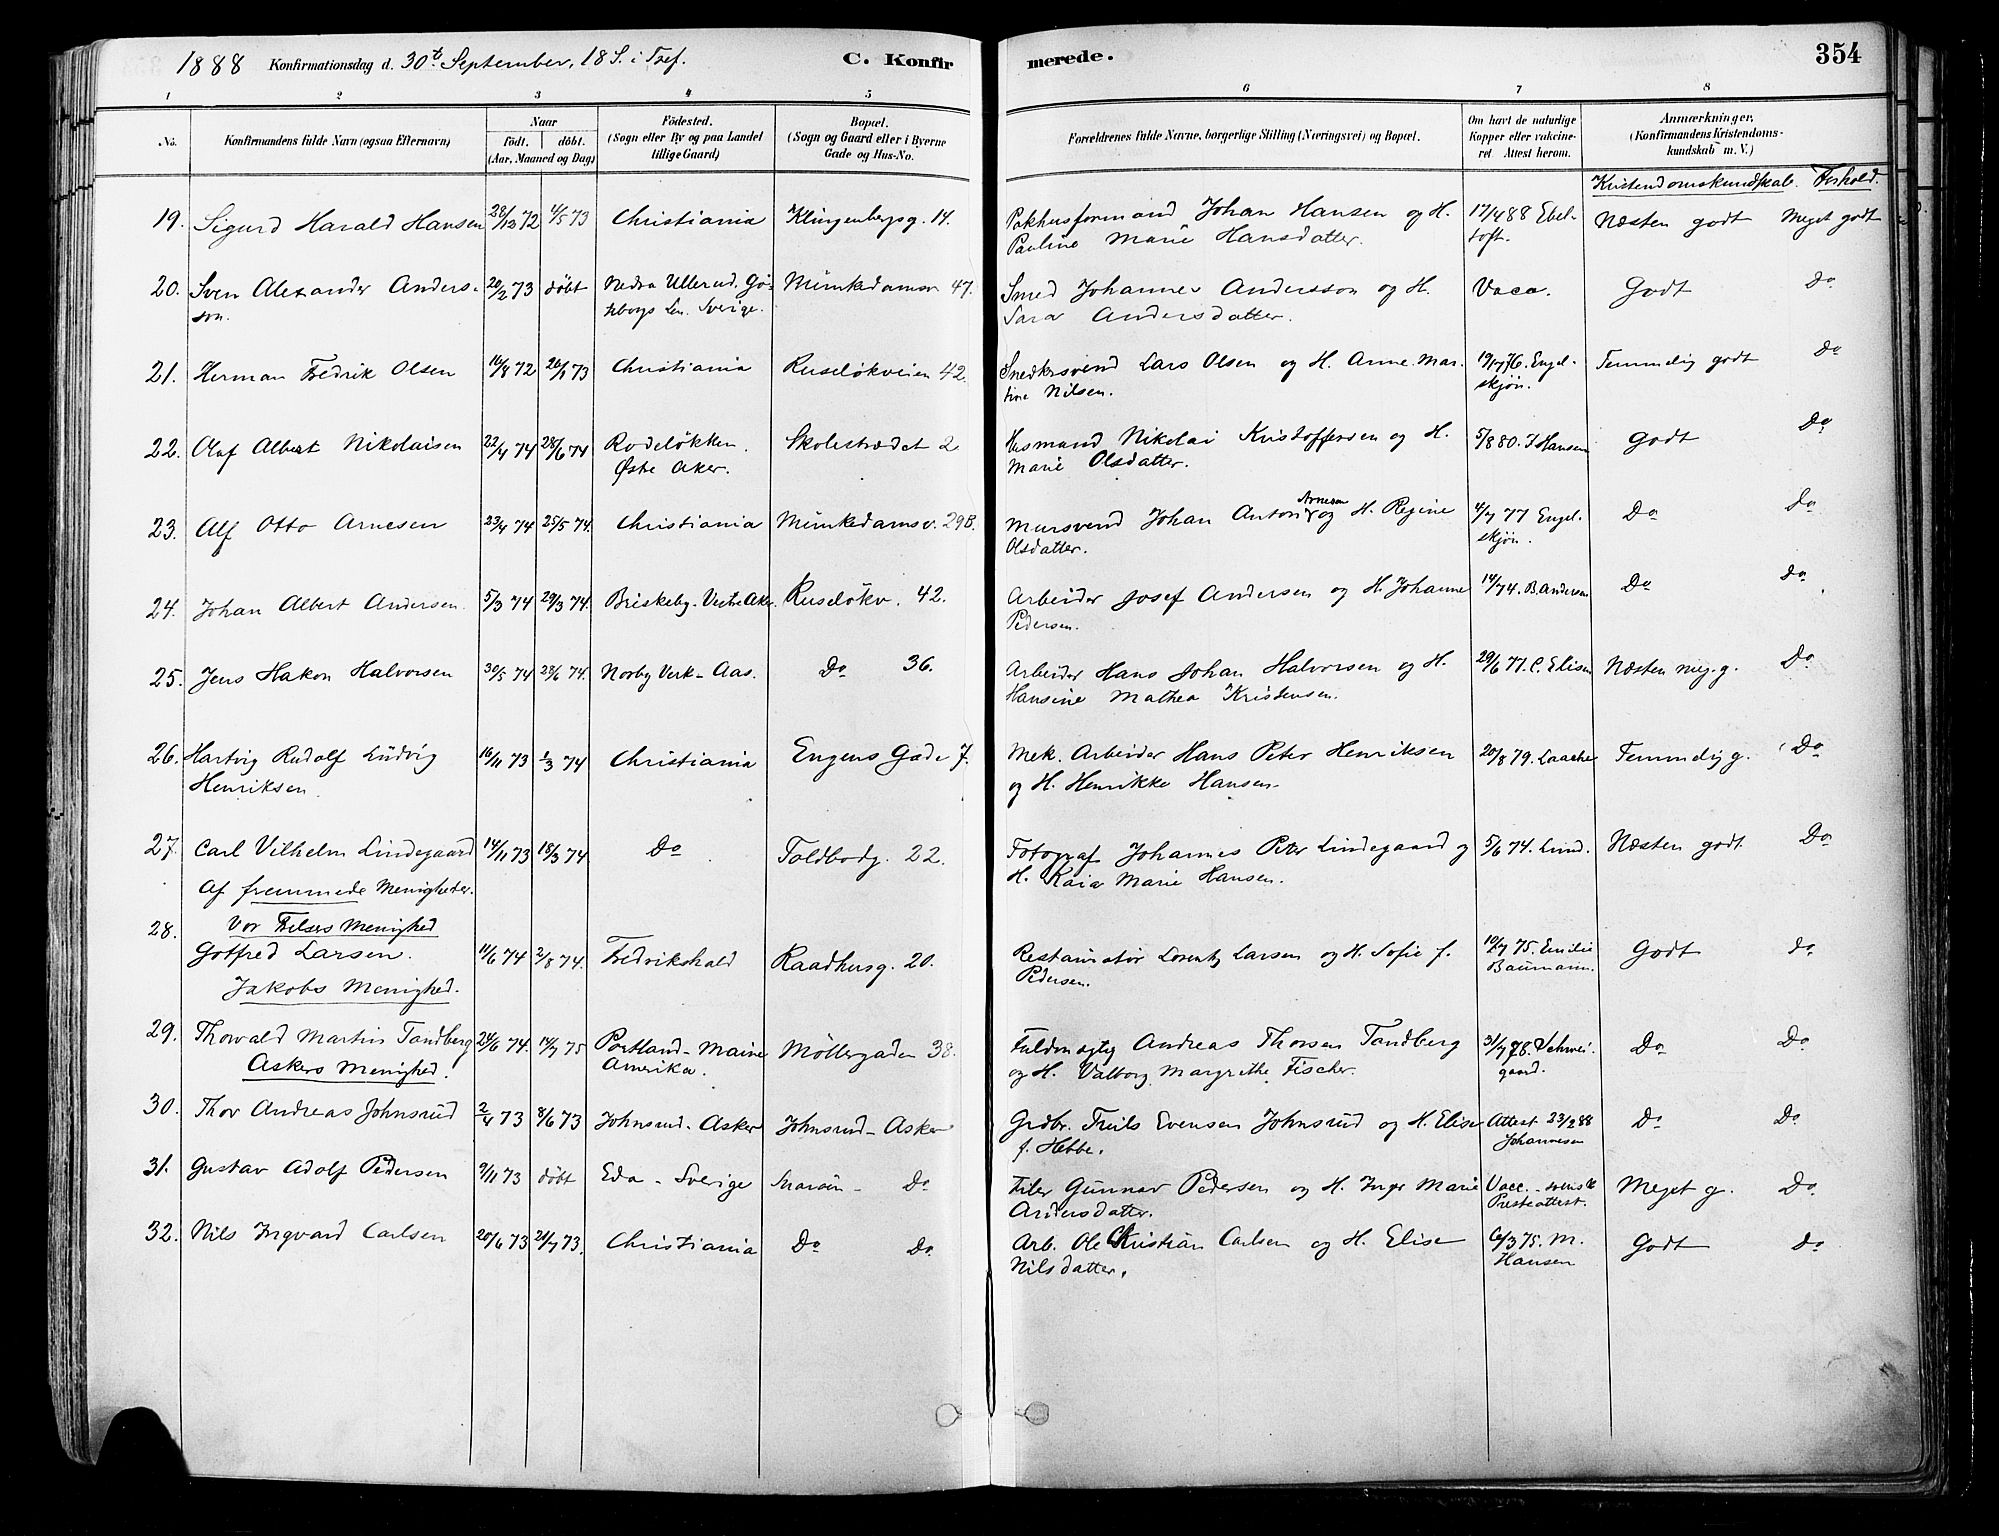 1888 Konfirmationsdag d. 30t September, 18 S. i Tref. C. Konfirmerede. 354
1 2 3 4 5 6 7 8
No. Konfirmandens fulde Navn (ogsaa Efternavn) Naar födt. döbt. (Aar, Maaned og Dag) Födested. (Sogn eller By og paa Landet tillige Gaard) Bopæl. (Sogn og Gaard eller i Byerne Gade og Hus-No. Forældrenes fulde Navne, borgerlige Stilling (Næringsvei) og Bopæl. Om havt de naturlige Kopper eller vakcineret Attest herom. Anmærkninger. (Konfirmandens Kristendomskundskab m. V.)
Kristendomskundskab. Forhold.
19. Sigurd Harald Hansen 28/12 72 4/5 73 Christiania Klingenbergsg. 14. Pakhusformand Johan Hansen og H. 17/4 88 Ebel- Næsten godt Meget godt
Pauline Marie Hansdatter. toft.
20. Sven Alexander Anders- 20/2 73 döbt Nedra Ullerud. Gö- Munkedamsv 47. Smed Johannes Andersson og H. Vacc. Godt Do
son. teborgs Len. Sverige. Sara Andersdatter.
21. Herman Fredrik Olsen 16/8 72 26/1 73 Christiania Ruseløkveien 42. Snedkersvend Lars Olsen og H. Anne Mar- 19/7 76. Engel- Temmelig godt Do
tine Nilsen. skjøn.
22. Olaf Albert Nikolaisen 22/4 74 28/6 74 Rodeløkken. Skolestrædet 2 Husmand Nikolai Kristoffersen og H. 5/8 80. J Hansen Godt Do
Østre Aker. Marie Olsdatter.
23. Alf Otto Arnesen 23/4 74 25/5 74. Christiania Munkedamsv. 29B. Mursvend Johan Anton Arnesen og H. Regine 4/7 77 Engel- Do Do
Olsdatter. skjøn.
24. Johan Albert Andersen. 5/3 74 29/3 74. Briskeby. Vestre Aker. Ruseløkv. 42. Arbeider Josef Andersen og H. Johanne 14/7 74. B. Andersen Do Do
Pedersen.
25. Jens Hakon Halvorsen 30/5 74 28/6 74. Norby Verk - Aas. Do 36. Arbeider Hans Johan Halvorsen og H. 29/6 77. C. Elisen Næsten meg. g. Do
Hansine Mathea Kristensen.
26. Hartvig Rudolf Ludvig 16/11 73 1/3 74 Christiania Engens Gade 7. Mek. Arbeider Hans Peter Henriksen 20/8 79. Laache Temmelig g. Do
Henriksen. og H. Henrikke Hansen.
27. Carl Vilhelm Lindegaard 14/11 73 18/3 74 Do Toldbodg. 22. Fotograf Johannes Peter Lindegaard og 5/6 74. Lund. Næsten godt Do
Af fremmede Menigheder. H. Kaia Marie Hansen.
28. Vor Frelsers Menighed
Gotfred Larsen. 11/6 74 2/8 74. Fredrikshald Raadhusg. 20. Restauratør Lorentz Larsen og H. Sofie f. 10/7 75. Emilie Godt Do
Jakobs Menighed. Pedersen. Baumann.
29. Thorvald Martin Tandberg 24/6 74. 14/7 75 Portland - Maine Möllergaden 38. Fuldmægtig Andreas Thorsen Tandberg 31/7 78. Schwei- Do Do
Askers Menighed. Amerika. og H. Valborg Margrethe Fischer. gaard.
30. Thor Andreas Johnsrud 2/4 73 8/6 73 Johnsrud - Asker Johnsrud - Asker Grdbr. Truls Evensen Johnsrud og H. Elise Attest 23/2 88 Do Do
f. Hebbe. Johannesen
31. Gustav Adolf Pedersen 9/11 73 döbt Eda - Sverige Snarøen - Do Filer Gunnar Pedersen og H. Inger Marie Vacc. - svensk Meget g. Do
Andersdatter. Presteattest.
32. Nils Ingvard Carlsen 20/6 73 21/7 73. Christiania Do Do Arb. Ole Christian Carlsen og H. Elise 6/3 75. M. Godt Do
Nilsdatter. Hansen